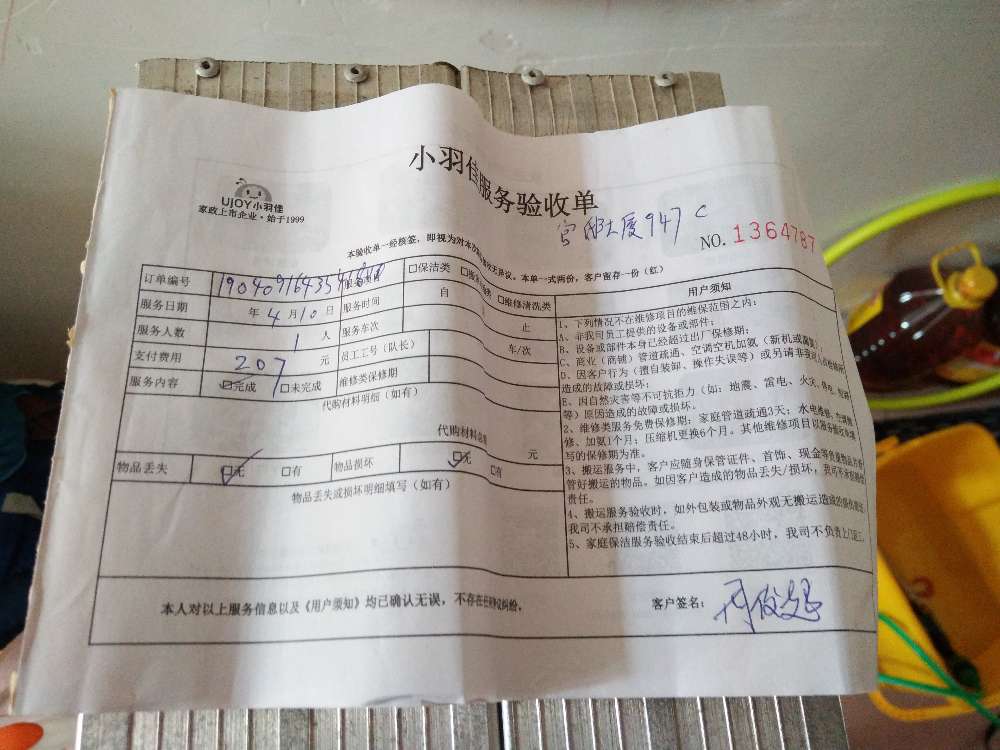 小羽佳服务验收单
UJOY小羽佳
家政上市企业·始于1999
大厦947 C
NO. 1364787
本验收单一经核签，即视为对本次服务无异议。本单一式两份，客户留存一份（红）
订单编号
□保洁类 □维修清洗类
服务日期 年4月10日 服务时间 自 止
服务人数 1 人 服务车次 车/次
支付费用 207 元 员工工号（队长）
服务内容 ☑完成 □未完成 维修类保修期
代购材料明细（如有）
代购材料总 元
物品丢失 ☑无 □有 物品损坏 ☑无 □有
物品丢失或损坏明细填写（如有）
用户须知
1、下列情况不在维修项目的维保范围之内：
A、非我司员工提供的设备或部件；
B、设备或部件本身已经超过出厂保修期；
C、商业（商铺）管道疏通、空调空机加氨（新机或腐蚀）
D、因客户行为（擅自装卸、操作失误等）或另请非我司人员维修所
造成的故障或损坏；
E、因自然灾害等不可抗拒力（如：地震、雷电、火灾、
等）原因造成的故障或损坏。
2、维修类服务免费保修期：家庭管道疏通3天；水电维修、
修、加氨1个月；压缩机更换6个月。其他维修项目以服务验收单填
写的保修期为准。
3、搬运服务中，客户应随身保管证件、首饰、现金等贵重物品并
管好搬运的物品。如因客户造成的物品丢失/损坏，我司不承担赔偿
责任。
4、搬运服务验收时，如外包装或物品外观无搬运造成的
我司不承担赔偿责任。
5、家庭保洁服务验收结束后超过48小时，我司不负责上门返工。
本人对以上服务信息以及《用户须知》均已确认无误，不存在任何争议纠纷。
客户签名：